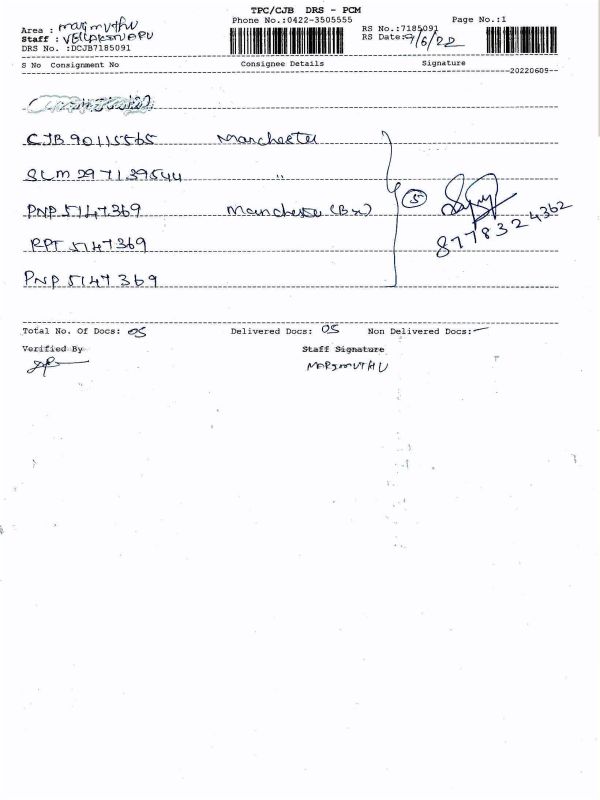 TPC/CJB DRS - PCM
Phone No.:0422-3505555
Page No.:1
Area : Marimuthu
Staff :
DRS No. :DCJB7185091
RS No.:7185091
RS Date:9/6/22
S No Consignment No Consignee Details Signature
20220609
CJB 90115565 Manchester
SLM 297139544 "
PNP 5147369 Manchester (Bx)
RPT 5147369
PNP 5147369
5
8778324362
Total No. Of Docs: 05 Delivered Docs: 05 Non Delivered Docs: —
Verified By Staff Signature
MARIMUTHU